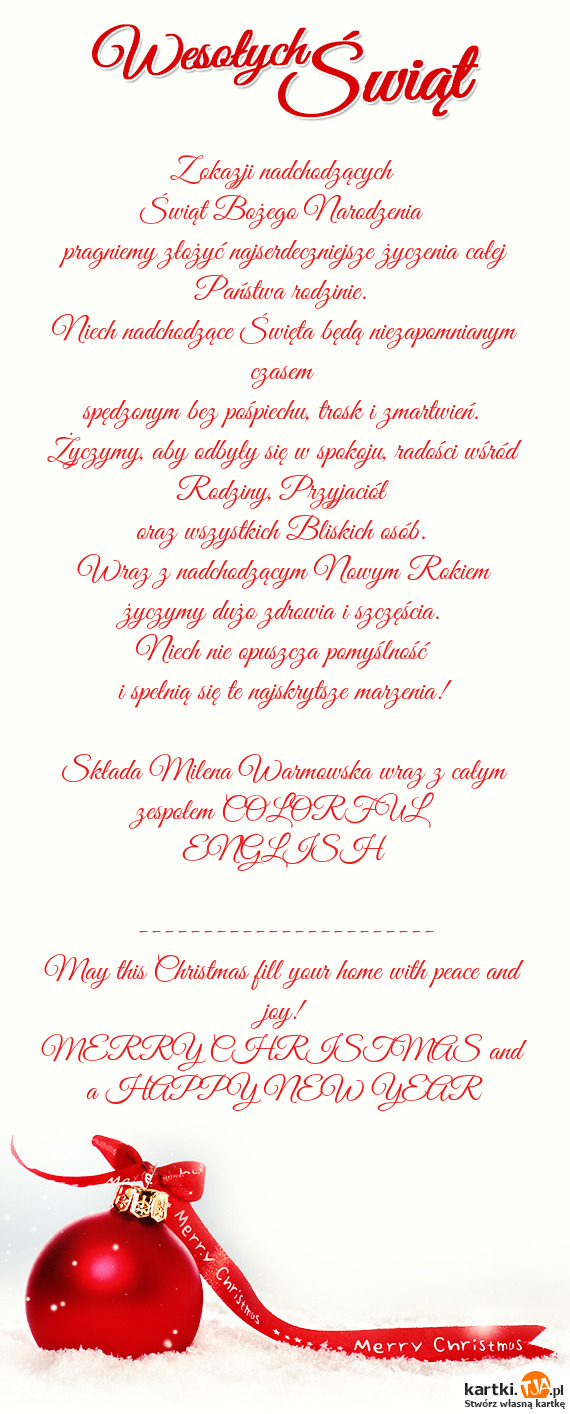 Wesołych Świąt
Z okazji nadchodzących
Świąt Bożego Narodzenia
pragniemy złożyć najserdeczniejsze życzenia całej
Państwa rodzinie.
Niech nadchodzące Święta będą niezapomnianym
czasem
spędzonym bez pośpiechu, trosk i zmartwień.
Życzymy, aby odbyły się w spokoju, radości wśród
Rodziny, Przyjaciół
oraz wszystkich Bliskich osób.
Wraz z nadchodzącym Nowym Rokiem
życzymy dużo zdrowia i szczęścia.
Niech nie opuszcza pomyślność
i spełnią się te najskrytsze marzenia!
Składa Milena Warmowska wraz z całym
zespołem COLORFUL
ENGLISH
-----------------------
May this Christmas fill your home with peace and
joy!
MERRY CHRISTMAS and
a HAPPY NEW YEAR
Merry Christmas
Merry Christmas
kartki.TJA.pl
Stwórz własną kartkę